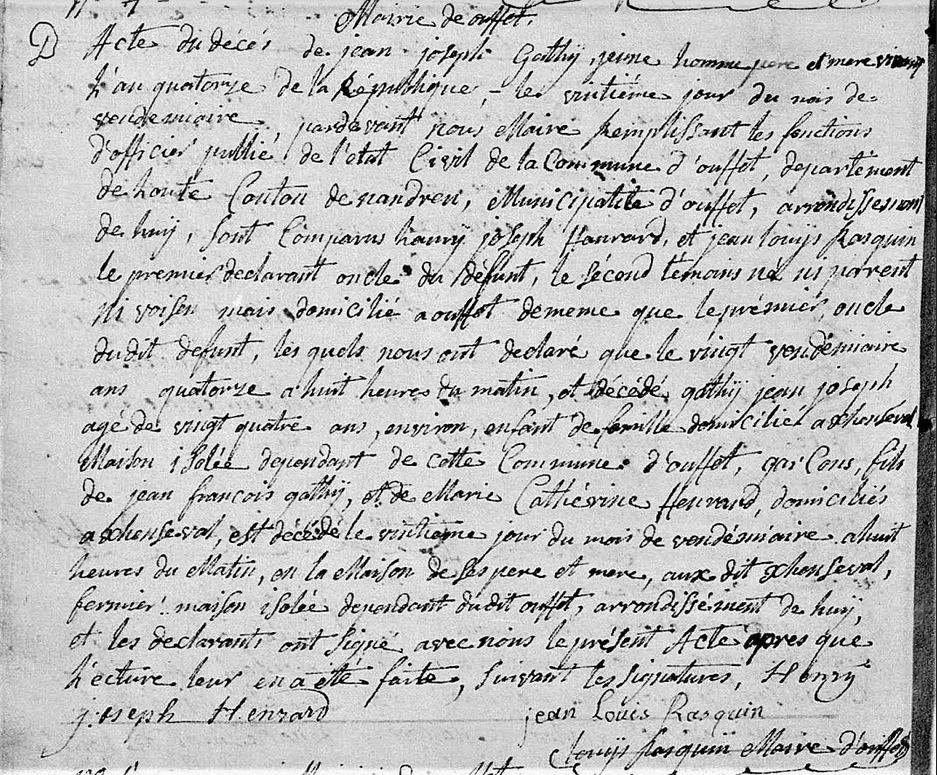 Mairie de ouffet.
D Acte du décés de jean joseph Gathÿ, jeune homme pere et mere vivans
L'an quatorze de la République, le vintiéme jour du mois de
vendemiaire, pardevant nous Maire Remplissant les fonctions
d'officier public de l'etat Civil de la Commune d'ouffet, departément
de l'ourte Canton de nandren, Municipalité d'ouffet, arrondissement
de huÿ, sont Comparus henrÿ joseph Henrard, et jean louÿs Rasquin
le premier declarant oncle du défunt, le sécond témans né ni parent
ni voisen mais domicilié a ouffet dememe que le prémier, oncle
du dit defunt, les quels nous ont declaré que le vingt vendémiaire
ans quatorze a huit heures du matin, et décédé gathÿ jean joseph
agé de vingt quatre ans, environ, enfant de famille domicilié a xhenseval
Maison isolée dependant de cette Commune d'ouffet, garCons, fils
de jean francois gathÿ, et de Marie Cathérine Henrard, domiciliés
a xhenseval, est décédé le vintieme jour du mois de vendémiaire a huit
heures du Matin, en la Maison de ses pere et mere, aux dit xhenseval,
fermier maison isolée dependant du dit ouffet, arrondissément de huÿ,
et les declarants ont signé avec nous le présent Acte apres que
L'ecture leur en a été faite, suivant les signatures, Henrÿ
joseph Henrard jean Louis Rasquin
louÿs Rasquin Maire d'ouffet